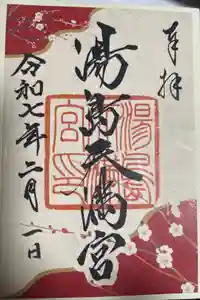 奉拝
湯島天満宮
令和七年二月一日
湯島
宮印